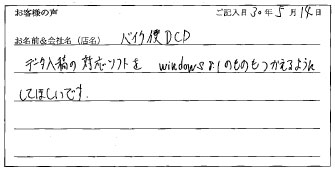 お客様の声 ご記入日 30年 5月 14日
お名前&会社名(店名) バイク便DCD
データ入稿の対応ソフトを windows 8.1のものもつかえるように
してほしいです.